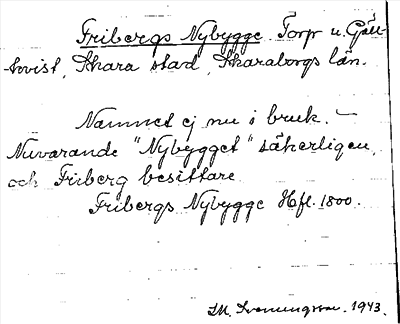 Fribergs Nybygge. Torp u. Gäll-
kvist, Skara stad, Skaraborgs län.
Namnet ej nu i bruk. –
Nuvarande "Nybygget" säkerligen,
och Friberg besittare.
Fribergs Nybygge Hfl. 1800.
M. Svenungsson. 1943.